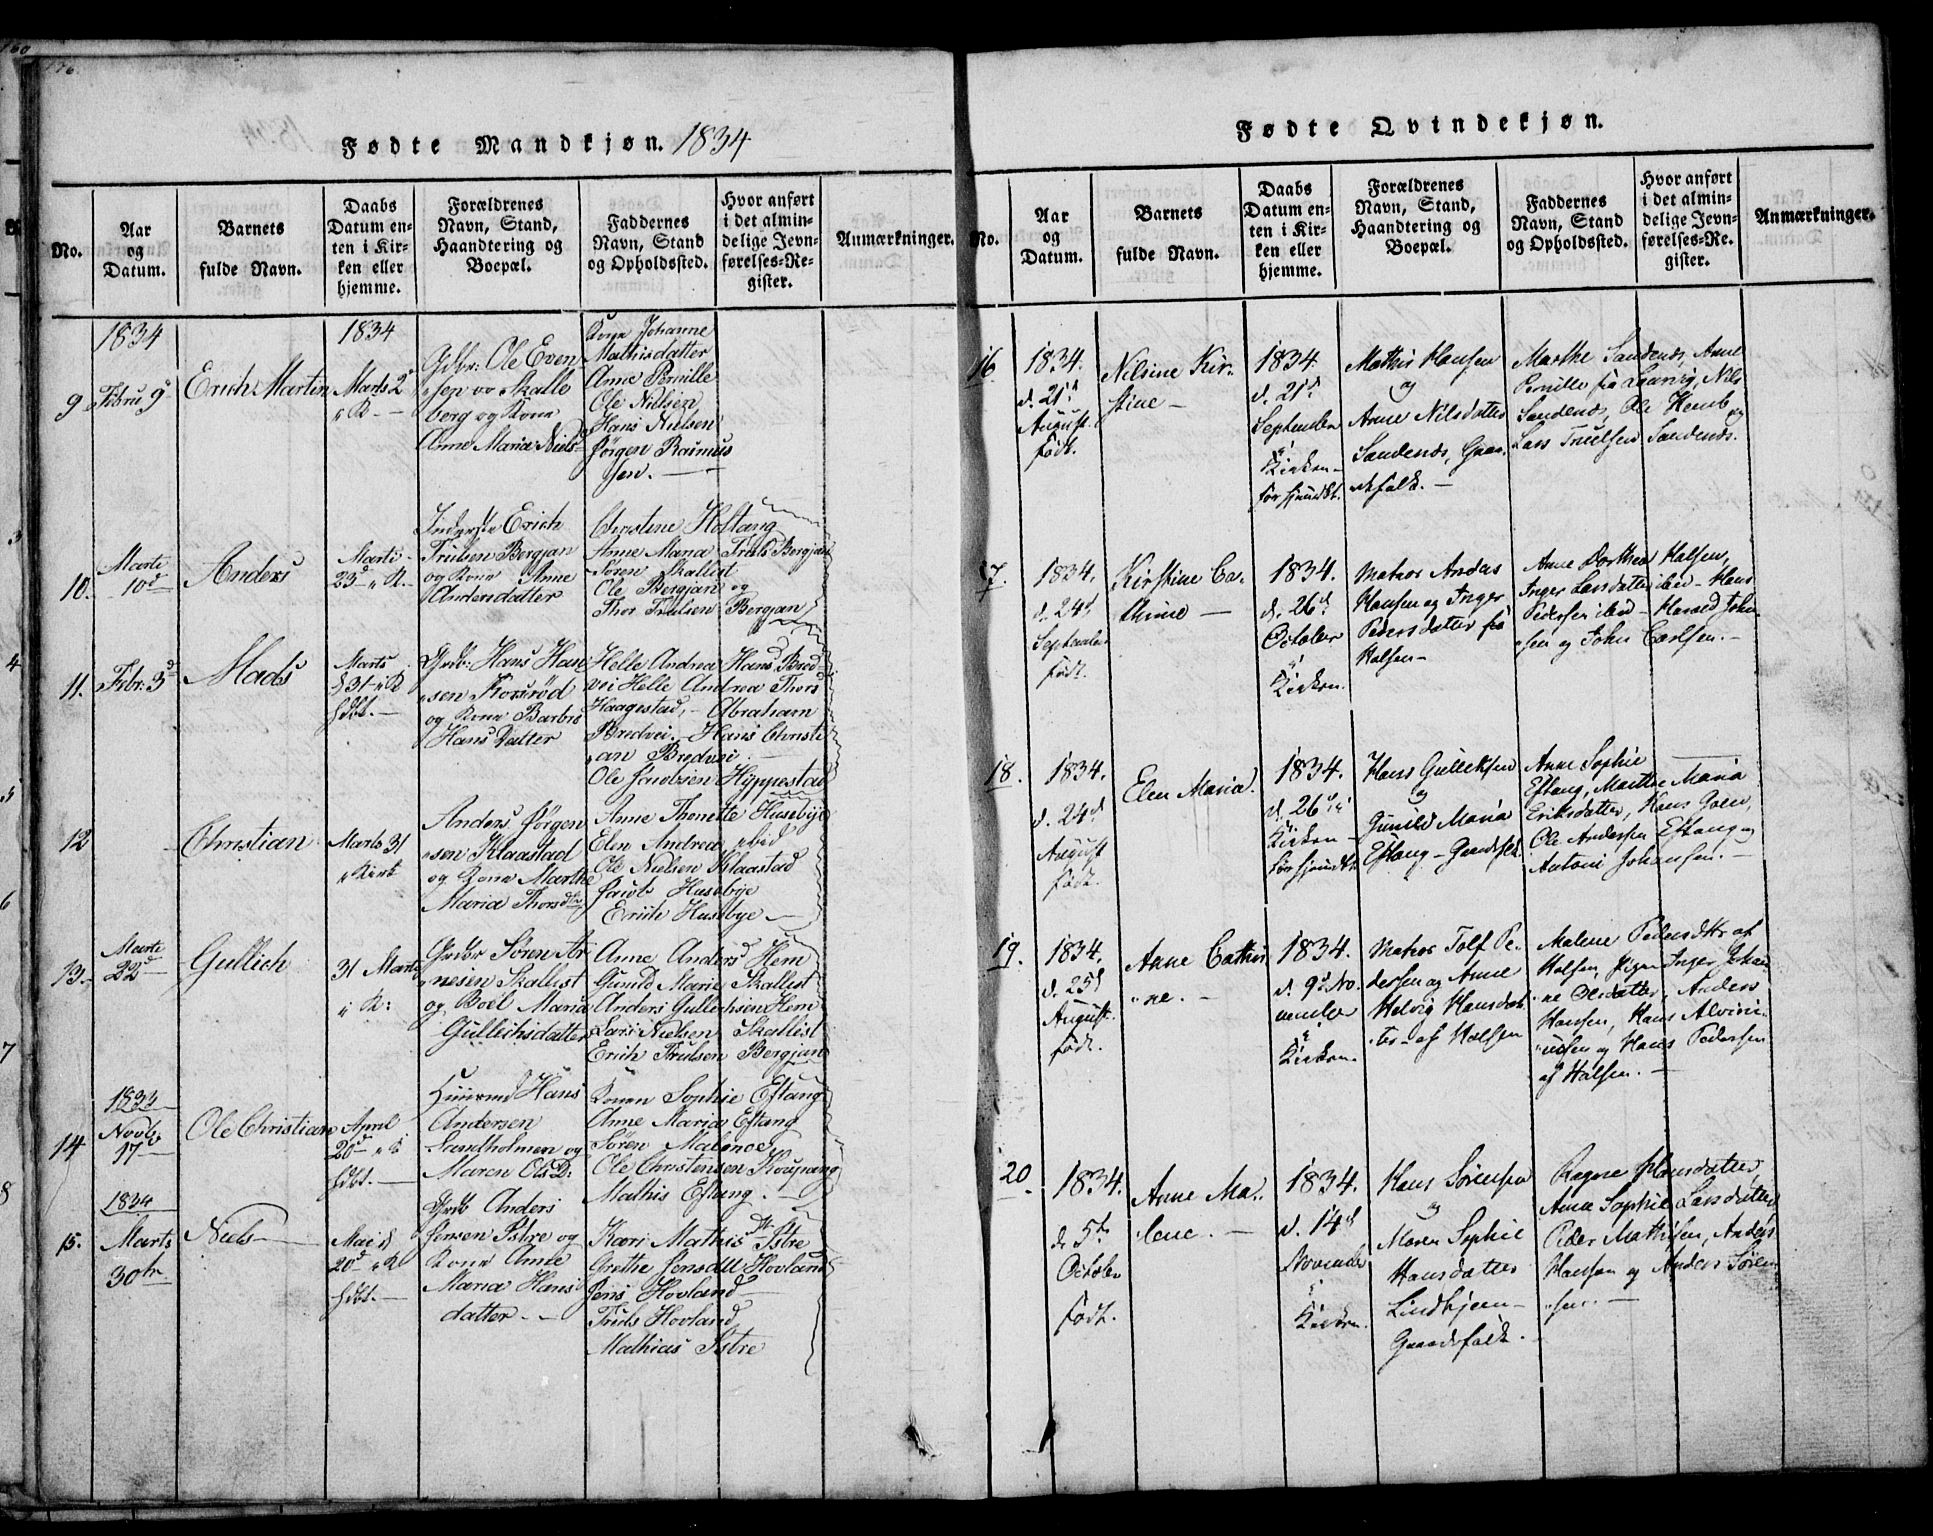 176.
Fødte Mandkjøn. 1834
No.
Aar
og
Datum.
Barnets
fulde Navn.
Daabs
Datum en-
ten i Kir-
ken eller
hjemme.
Forældrenes
Navn, Stand,
Haandtering og
Boepæl.
Faddernes
Navn, Stand
og Opholdssted.
Hvor anført
i det almin-
delige Jevn-
førelses-Re-
gister.
Anmærkninger.
9
1834
Febru 9
Erich Martin
1834
Marts 2
"K
Gdbr: Ole Even
sen Skalle
berg og Kone
Anne Maria Niels
Kone Johanne
Mathisdatter
Anne Pernille
Ole Nielsen
Hans Nielsen
Jørgen Rasmus
sen.
10.
Marts
10d
Anders
Marts
23d " K.
Inderste Erich
Trulsen Bergan
og Kone Anne
Andersdatter
Christine Holtang
Anne Maria Truls Bergan
Søren Skallist
Ole Bergan og
Thor Trulsen Bergan
11.
Febr: 3d
Mads
Marts
31 " K
hdbt.
Grdb: Hans Han
sen Korsrød
og Kone Barbro
Hans Datter
Helle Andrea Hans Bred-
vei Helle Andrea Thors
Haagestad, - Abraham
Bredvei. - Hans Christi
an Bredvei
Ole Jonsen Hyppestad
12
Christian
Marts 31
" Kirk
Anders Jørgen
sen Klaastad
og Kone Marthe
Maria Thorsdtr
Anne Thonette Husebye
Elen Andrea ibid
Ole Nielsen Klaastad
Jacob Husebye
Erich Husebye
13.
Marts
22d
Gullich
31 Marts
i K:
Grdbr Søren Ar
nesen Skallist
og Boel Maria
Gullichsdatter
Anne Anders Hem
Gunild Marie Skallist
Anders Gullichsen Hem
Lars Nielsen Skallist
Erich Trulsen Bergan
14
1833
Novbr
17
Ole Christian
April
20d " K
hdbt.
Huusmd Hans
Andersen
Sandholmen og
Maren Ols D:
Konen Sophie Eftang
Anne Maria Eftang
Søren Malmøe
Ole Christensen Kaupang
Mathis Eftang.
15.
1834
Marts
30te
Niels
Mai
20d " K
hdbt.
Grdb Anders
Jensen Istre og
Kone Anne
Maria Hans
datter
Kari Mathis Dtr Istre
Grethe Jonsdtt Hovland
Jens Hovland
Truls Hovland
Mathias Istre
Fødte Qvindekjøn.
No.
Aar
og
Datum.
Barnets
fulde Navn.
Daabs
Datum en-
ten i Kir-
ken eller
hjemme.
Forældrenes
Navn, Stand,
Haandtering og
Boepæl.
Faddernes
Navn, Stand
og Opholdssted.
Hvor anført
i det almin-
delige Jevn-
førelses-Re-
gister.
Anmærkninger.
16
1834.
d. 21d
August.
født.
Nilsine Kir-
stine -
1834.
d. 21d
September
i
Kirken -
før hjemdbt.
Mathis Hansen
og
Anne Nilsdatter
Sandenes, Gaar-
defolk. -
Marthe Sandenes, Anne
Pernille fra Laurvig, Nils
Sandenes, Ole Hemb og
Lars Truelsen Sandenes.
17.
1834.
d. 24d
September
født.
Kirstine Ca-
thrine -
1834.
d. 26d
October
i
Kirken.
Matros Anders
Hansen og Inger
Pedersdatter fra
Halsen -
Anne Dorthea Halsen,
Inger Larsdatter ibid - Hans
Pedersen ibid - Harald John-
sen og John Carlsen. -
18.
1834.
d. 24d
August
født.
Elen Maria.
1834.
d. 26d i
Kirken -
før hjemdbt
Hans Gulliksen
og
Gunild Maria
Eftang - Gaardfolk
Anne Sophie
Eftang, Marthe Maria
Eriksdatter, Hans Goen,
Ole Andersen Eftang og
Antoni Johansen. -
19.
1834.
d. 25d
August.
født.
Anne Cathri-
ne. -
1834.
d. 9d No-
vember
i
Kirken.
Matros Tolf Pe-
dersen og Anne
Helvig Hansdat-
ter - af Halsen
Malene Pedersdttr af
Halsen, Pigen Inger Johan-
ne Olsdatter, Anders
Hansen, Hans Alvini-
usen og Hans Pedersen
af Halsen. -
20
1834.
d. 5te
October
født.
Anne Ma-
lene. -
1834.
d. 14d
November
i
Kirken.
Hans Sørensen
og
Maren Sophie
Hansdatter
Lindhjem -
Gaardefolk.
Ragne Hansdatter
Anne Sophie Larsdatter
Peder Mathisen, Anders
Hansen og Anders Søren-
sen. -